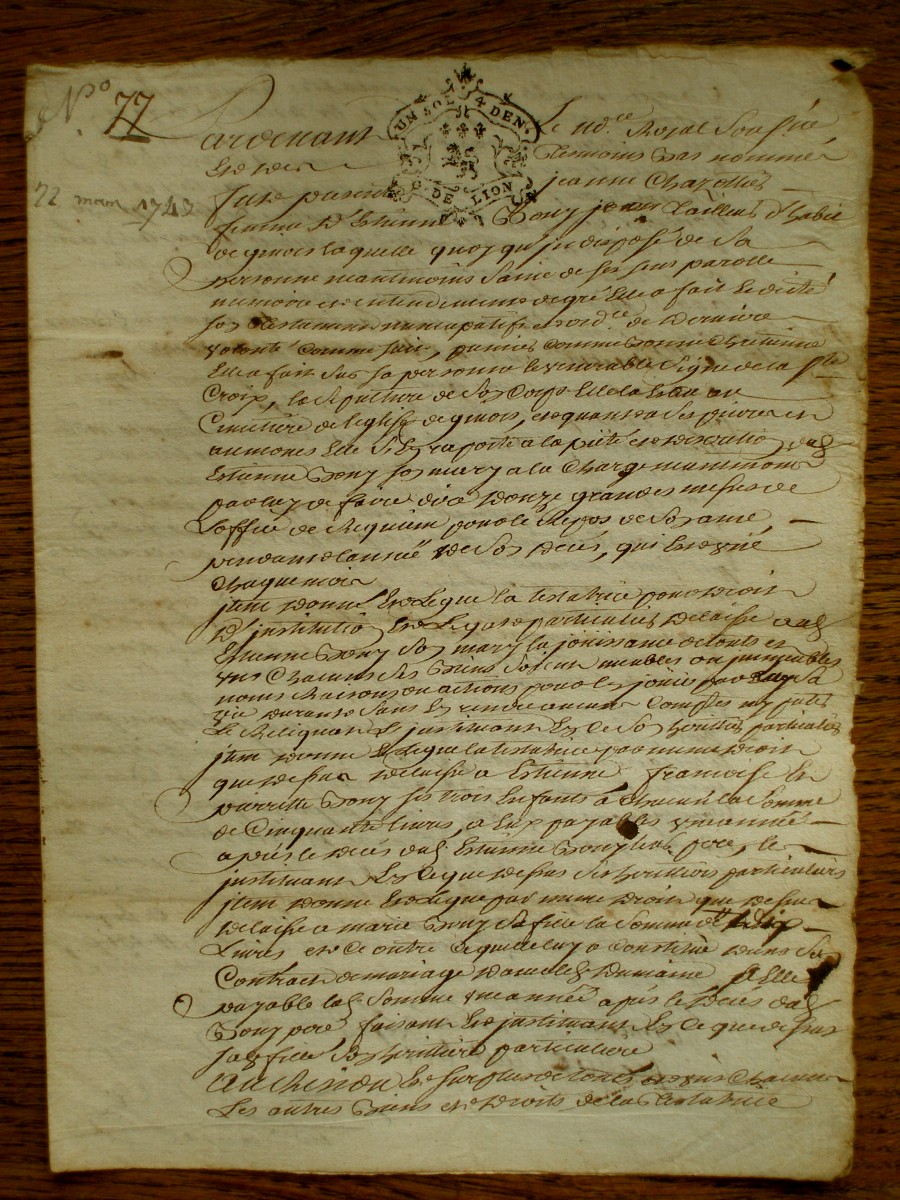 N.º 77
22 mars 1743
UN SOL 4 DEN.
G. DE LION
Pardevant Le nd.re Royal Soussigné
Et des temoins bas nommés
fut presente jeanne
femme D'Estienne Bony
de laquelle quoy qu'indisposée de Sa
personne neantmoins Saine de Ses sens parolle
memoire et entendement de gré Elle a fait Et dicté
Son testament nuncupatif et ord.ce de Derniere
volonté comme suit, premier comme bonne chretienne
Elle a fait Sur Sa personne le venerable Signe de la Ste
Croix, la Sepulture de Son Corps Elle la Eslu au
Cimetiere de l'eglise de et quant a Ses œuvres et
aumones Elle S'En raporte a la pieté et discretion dud
Estienne Bony Son mary a la Charge neantmoins
par luy de faire dire Donze grandes messes de
L'office de Requiem pour le Repos de Son ame,
pendant l'année de Son Deces, qui Est une
Chaque mois
jtem donne Et Legue la testatrice pour Droit
D'institution Et Legat particulier Delaisse aud
Estienne Bony Son mary la jouissance de touts et
uns Chacuns Ses Biens Soient meubles ou immeubles
noms Raisons ou actions pour les jouir par luy Sa
vie durante Sans En rendre aucun Compte ny
Le Reliquat L'jnstituant En ce Son heritier particulier
jtem donne Et Legue la testatrice par meme droit
que dessus Delaisse a Estienne francoise Et
pierrette Bony Ses trois Enfants a Chacun la Somme
de Cinquante livres, a Eux payables une année
apres le deces dud Estienne Bony leur pere, les
jnstituant En ce que dessus Ses heritiers particuliers
jtem donne Et Legue par meme Droit que dessus
Delaisse a marie Bony Sa fille la Somme de dix
Livres et ce outre ce que luy a Constitué dans Son
Contract de mariage avec led Dumaine a Elle
payable lad Somme une année apres le Deces dud
Bony pere faisant Et jnstituant En ce que dessus
Sad fille Son heritiere particuliere
Au Residu Et Surplus de touts et uns Chacuns
Les autres Biens et Droits de la Testatrice